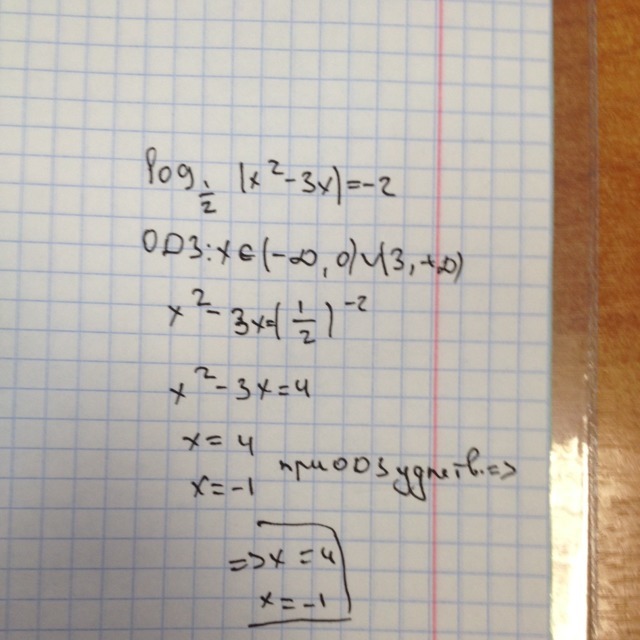 log 1/2 |x²-3x|=-2
ОДЗ: x∈(-∞,0)∪(3,+∞)
x²-3x=(1/2)⁻²
x²-3x=4
x=4
x=-1 при ОДЗ удлетв. =>
=>x=4
x=-1